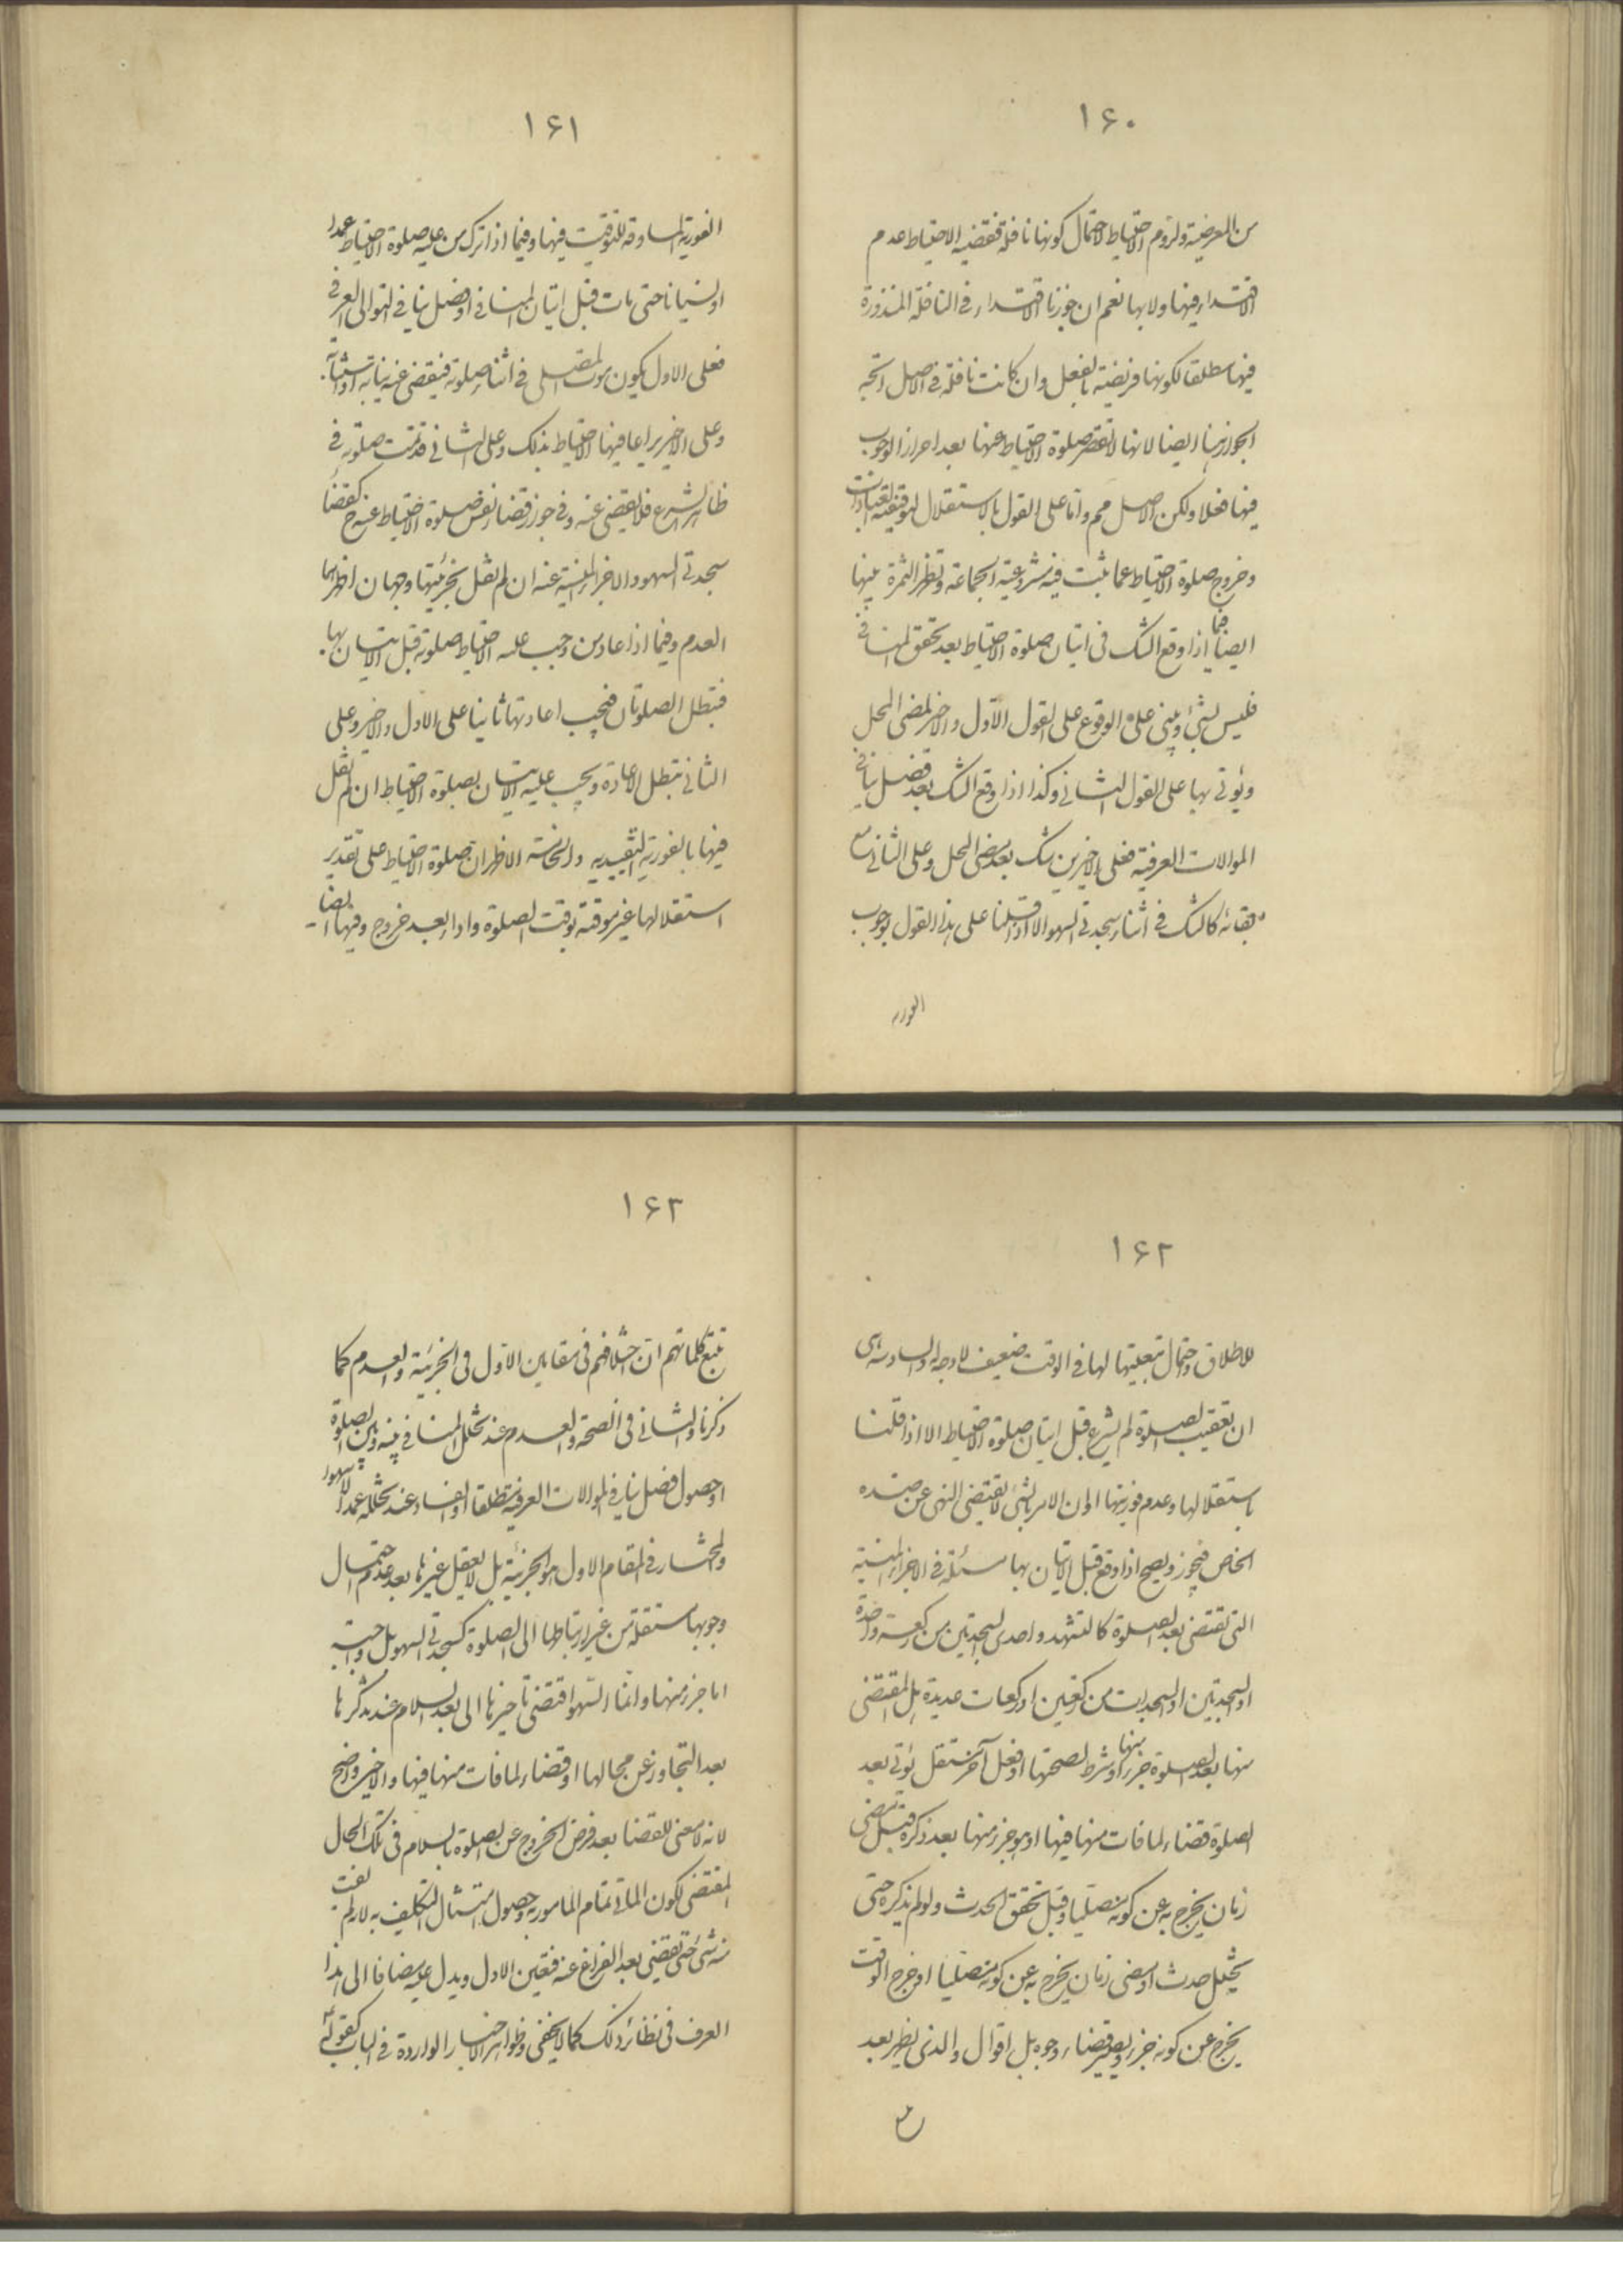 ١۶٠
من الفرضية ولزوم الاحتياط لاحتمال كونها نافلة فقضية الاحتياط عدم
الاقتداء فيها ولا بها نعم ان جوزنا الاقتداء في النافلة المنذورة
فيها مطلقا لكونها فريضة بالفعل وان كانت نافلة في الاصل اتجه
الجواز هنا ايضا لانها لا تقصر صلوة الاحتياط عنها بعد احراز الوجوب
فيها فعلا ولكن الاصل مم واما على القول بالاستقلال لتوقيفية العبادات
وخروج صلوة الاحتياط عما ثبت فيه مشروعية الجماعة وتظهر الثمرة بينها
ايضا فيما اذا وقع الشك في اتيان صلوة الاحتياط بعد تحقق المنافي
فليس بشئ ويبنى على الوقوع على القول الاول والاخر لمضى المحل
ويؤتى بها على القول الثاني وكذا اذا وقع الشك بعد فصل ينافي
الموالات العرفية فعلى الاخيرين شك بعد مضى المحل وعلى الثاني مع
بقائه كالشك في اثناء سجدتي السهو الا اذا قلنا على هذا القول بوجوب
الفورية
١۶١
الفورية المساوقة للتوقيت فيها وفيما اذا ترك من عليه صلوة الاحتياط عمدا
او نسيانا حتى مات قبل اتيان المنافي او فصل ينافي التوالى العرفي
فعلى الاول يكون موت المصلى في اثناء صلوته فيقضى عنه نيابة
وعلى الاخير يراعا فيها الاحتياط بذلك وعلى الثاني قد تمت صلوته في
ظاهر الشرع فلا يقضى عنه وفي جواز قضاء نفس صلوة الاحتياط عنه ح كقضاء
سجدتي السهو والاجزاء المنسية عنه ان لم نقل بجزئيتها وجهان اظهرهما
العدم وفيما اذا عاد من وجب عليه الاحتياط صلوته قبل الاتيان بها
فتبطل الصلوتان فيجب اعادتها ثانيا على الاول والاخير وعلى
الثاني تبطل الاعادة ويجب عليه الاتيان بصلوة الاحتياط ان لم نقل
فيها بالفورية التقييدية والخامسة الاظهر ان صلوة الاحتياط على تقدير
استقلالها غير موقتة بوقت الصلوة واداء بعد خروج وفيها ايضا
١۶٢
للاطلاق واحتمال تبعيتها لها في الوقت ضعيف لا وجه له والسادسة هي
ان تعقيب الصلوة لم يشرع قبل اتيان صلوة الاحتياط الا اذا قلنا
باستقلالها وعدم فوريتها او ان الامر بالشئ لا يقتضى النهى عن ضده
الخاص فيجوز ويصح اذا وقع قبل الاتيان بها مسئلة في الاجزاء المنسية
التي تقتضى بعد الصلوة كالتشهد واحدى السجدتين من ركعة واحدة
او السجدتين او السجدات من ركعتين او ركعات عديدة هل المقتضى
منها بعد الصلوة جزء منها او شرط لصحتها او فعل آخر مستقل يؤتى بعد
الصلوة قضاء لما فات منها فيها او هو جزء منها بعد ذكره قبل تقضى
زمان يخرج به عن كونه مصليا وقبل تحقق الحدث ولو لم يذكره حتى
تخلل حدث او مضى زمان يخرج به عن كونه مصليا او خرج الوقت
يخرج عن كونه جزء ويصير قضاء وجوه بل اقوال والذي يظهر بعد
١۶٣
تتبع كلماتهم ان اختلافهم في مقامين الاول في الجزئية والعدم كما
ذكرنا والثاني في الصحة والعدم عند تخلل المنافي بينه وبين الصلوة
او حصول فصل ينافي الموالات العرفية مطلقا او الفساد عند تخلله عمدا لا سهوا
والمختار في المقام الاول هو الجزئية بل لا يعقل غيرها بعد عدم احتمال
وجوبها مستقلة من غير ارتباطها الى الصلوة كسجدتي السهو بل واجبة
اما جزء منها وانما السهو اقتضى تاخيرها الى بعد السلام عند تذكرها
بعد التجاوز عن محالها او قضاء لما فات منها فيها والاخير واضح
لانه لا معنى للقضا بعد فرض الخروج عن الصلوة بالسلام في تلك الحال
المقتضى لكون الماتى تمام المامور به وحصول امتثال التكليف به لانه لم يفت
منه شئ حتى يقتضى بعد الفراغ عنه فتعين الاول ويدل عليه مضافا الى هذا
العرف في نظائر ذلك كما لا يخفى وظواهر الاخبار الواردة في الباب كقوله